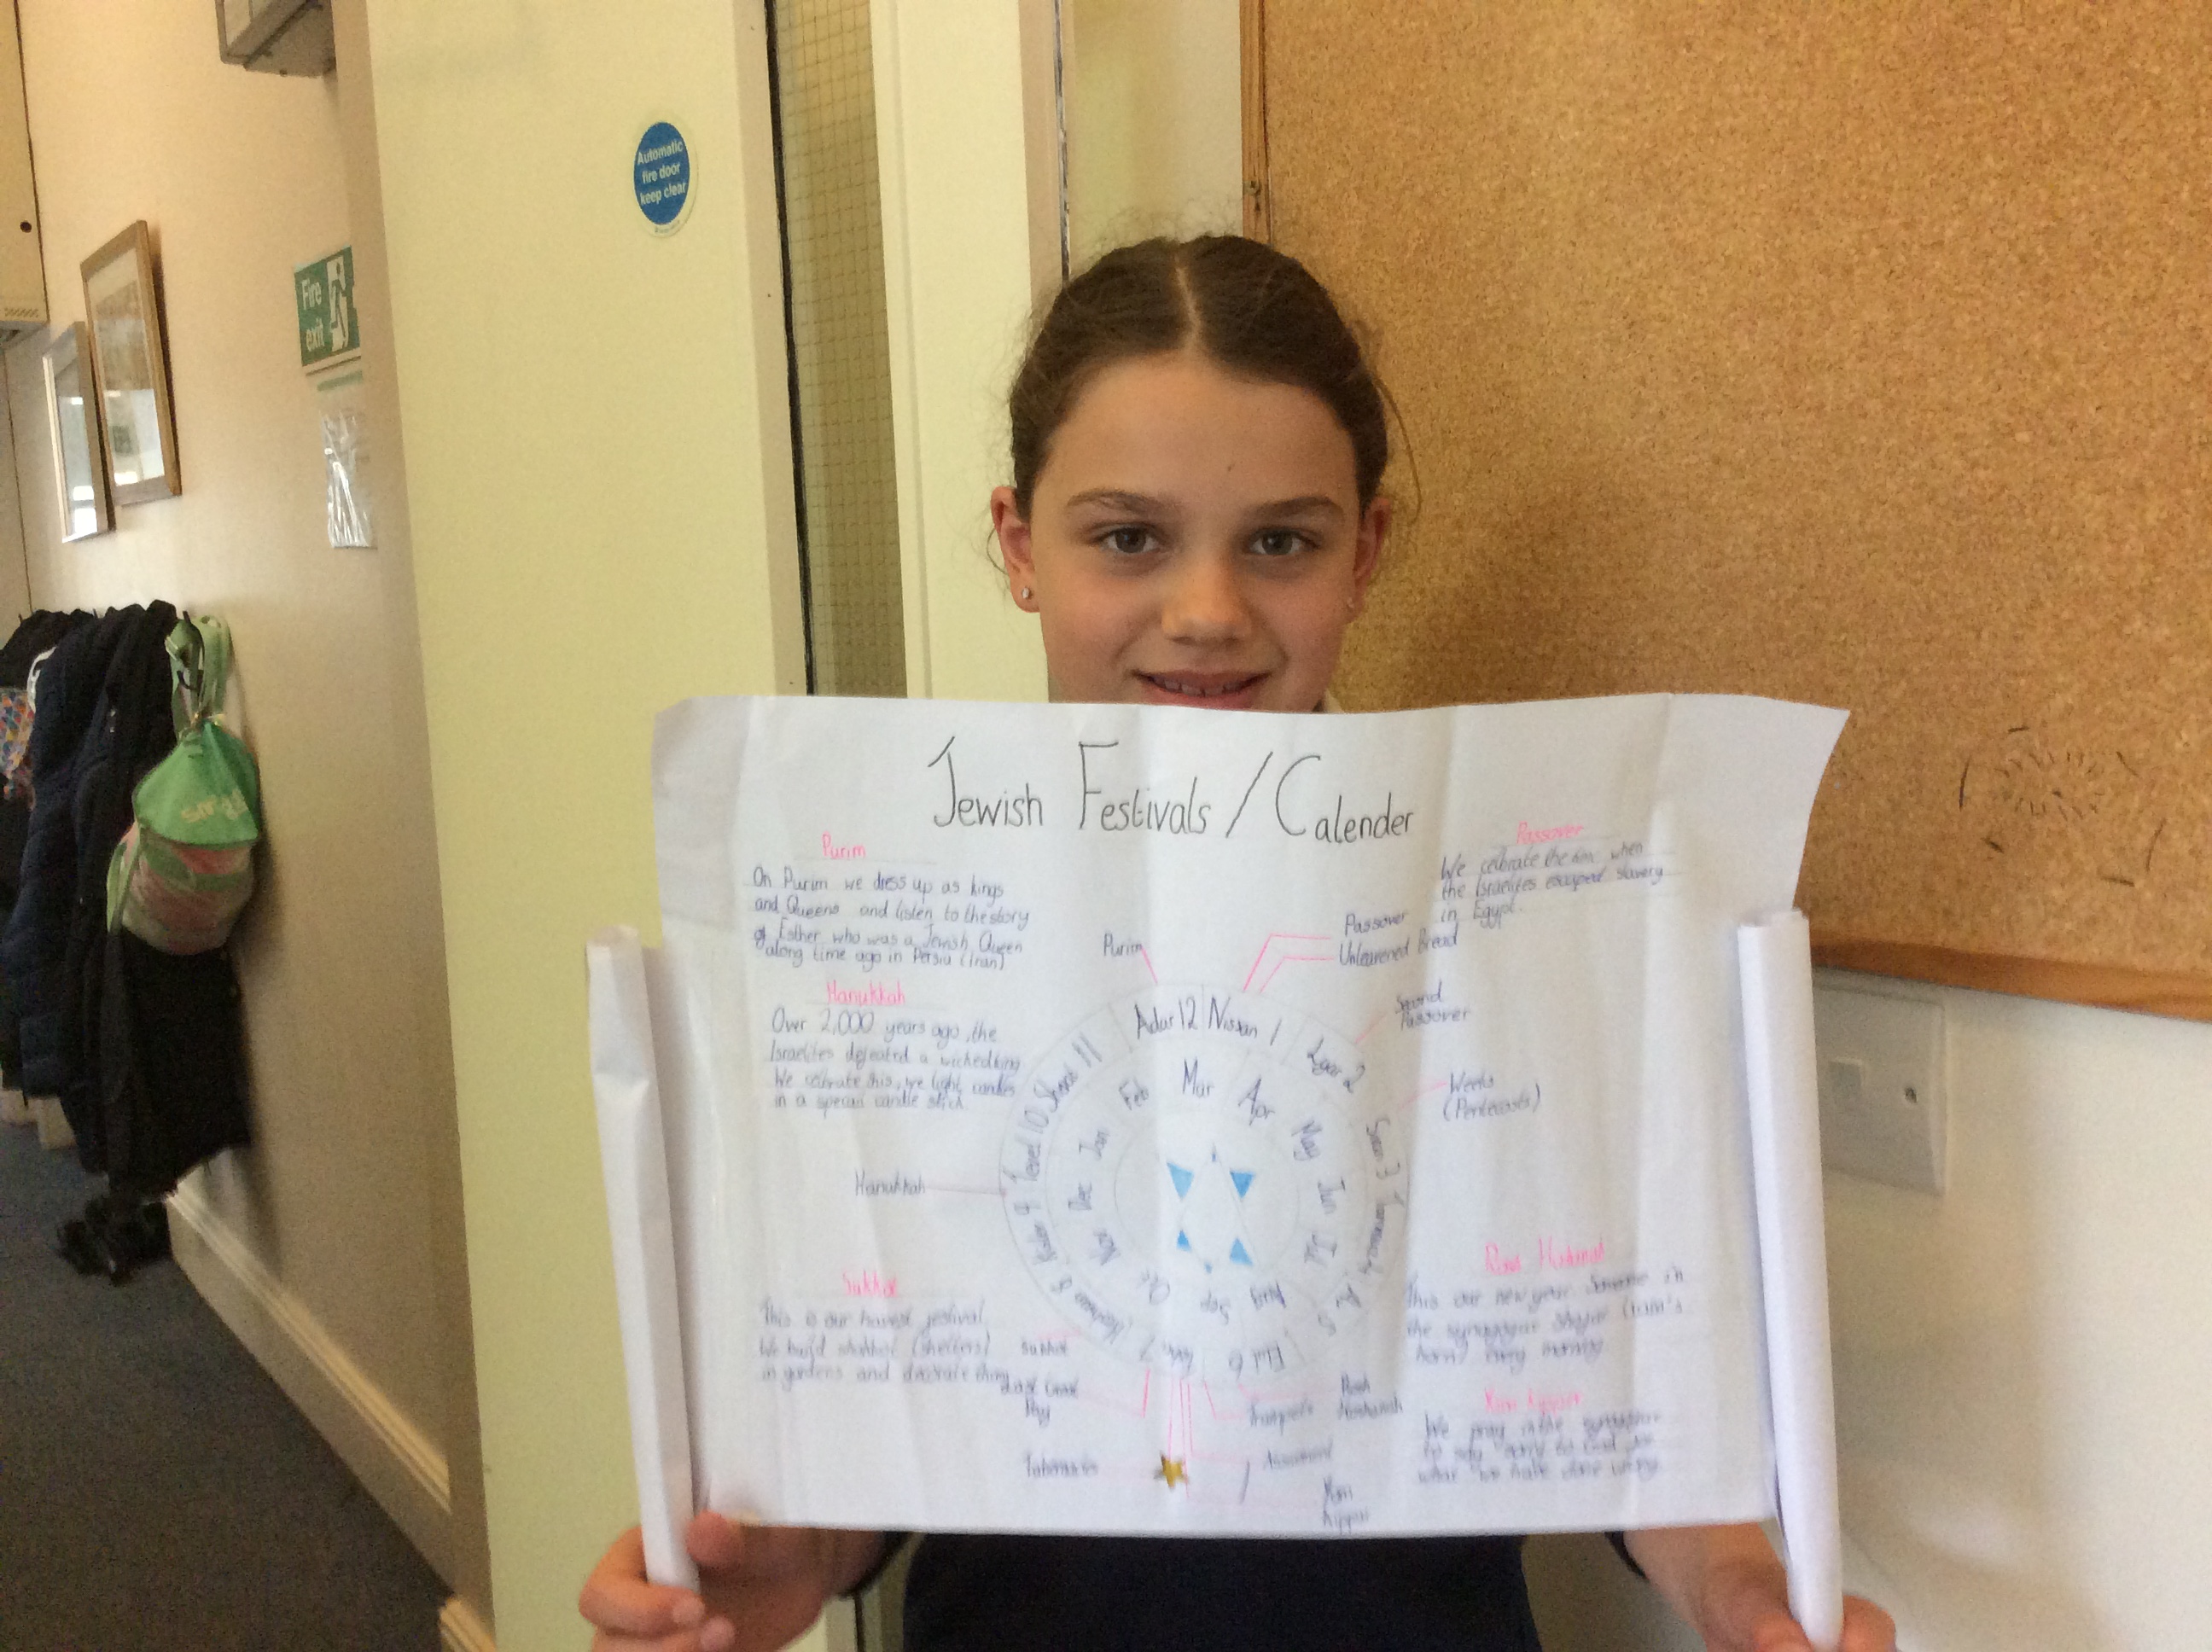 Automatic
fire door
keep clear
Fire
exit
Jewish Festivals / Calender
Purim
On Purim we dress up as kings
and Queens and listen to the story
of Esther who was a Jewish Queen
along time ago in Persia (Iran)
Hanukkah
Over 2,000 years ago, the
Israelites defeated a wicked king
We celbrate this, we light candles
in a special candle stick.
Passover
We celbrate the time when
the Israelites escaped slavery
in Egypt.
Purim
Passover
Unleavened Bread
Second
Passover
Weeks
(Pentecosts)
Hanukkah
Adar 12
Nissan 1
2
3
5
Elul 6
7
8
9
Tevet 10
11
Mar
Apr
May
Jun
Jul
Aug
Sep
Oct
Nov
Dec
Jan
Feb
Sukkot
This is our harvest festival
We build (shelters)
in gardens and decorate
Sukkot
Last Great
Day
Trumpets
Rosh
Hoshanah
Yom
Kippur
This our new year
the synagogue
horn) every morning
We pray in the
to say sorry to God for
what we have done wrong